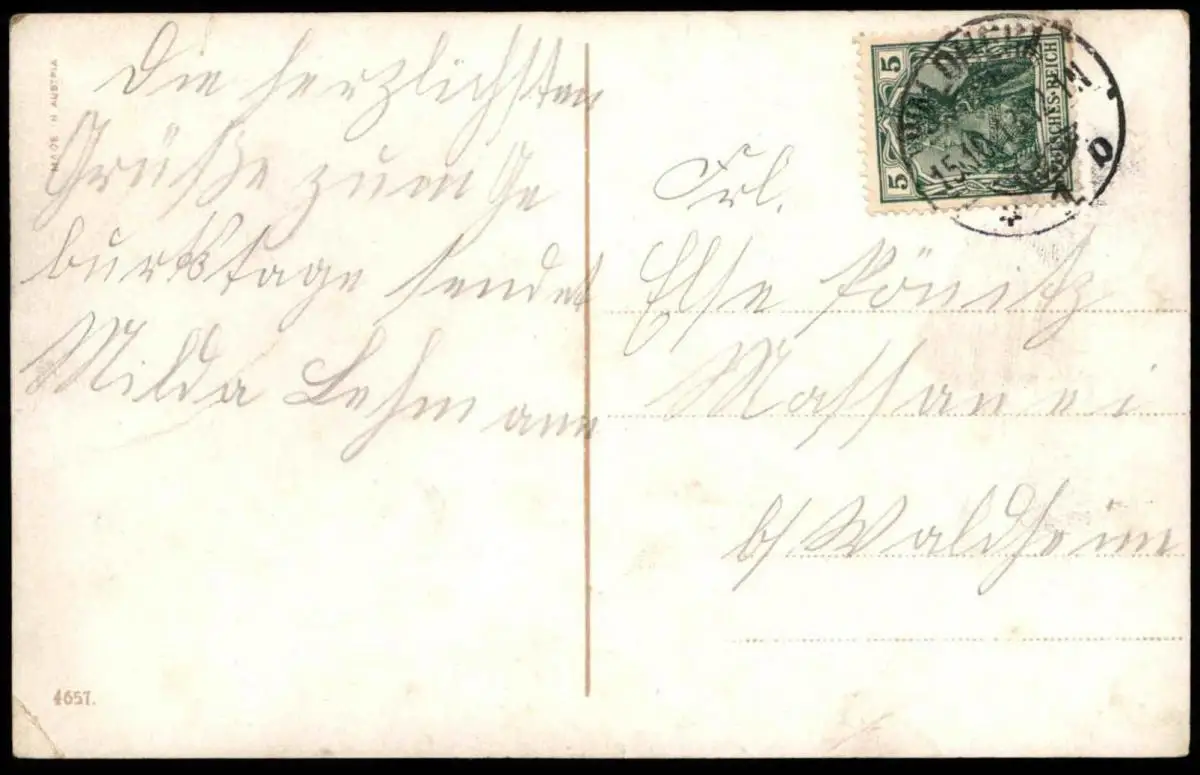 MADE IN AUSTRIA
Die herzlichsten
Grüße zum Ge
burtstage sendet
Milda Lehmann
4657.
5 5
DEUTSCHES REICH
15.10.
Frl.
Else Pönitz
Massanei
b/ Waldheim